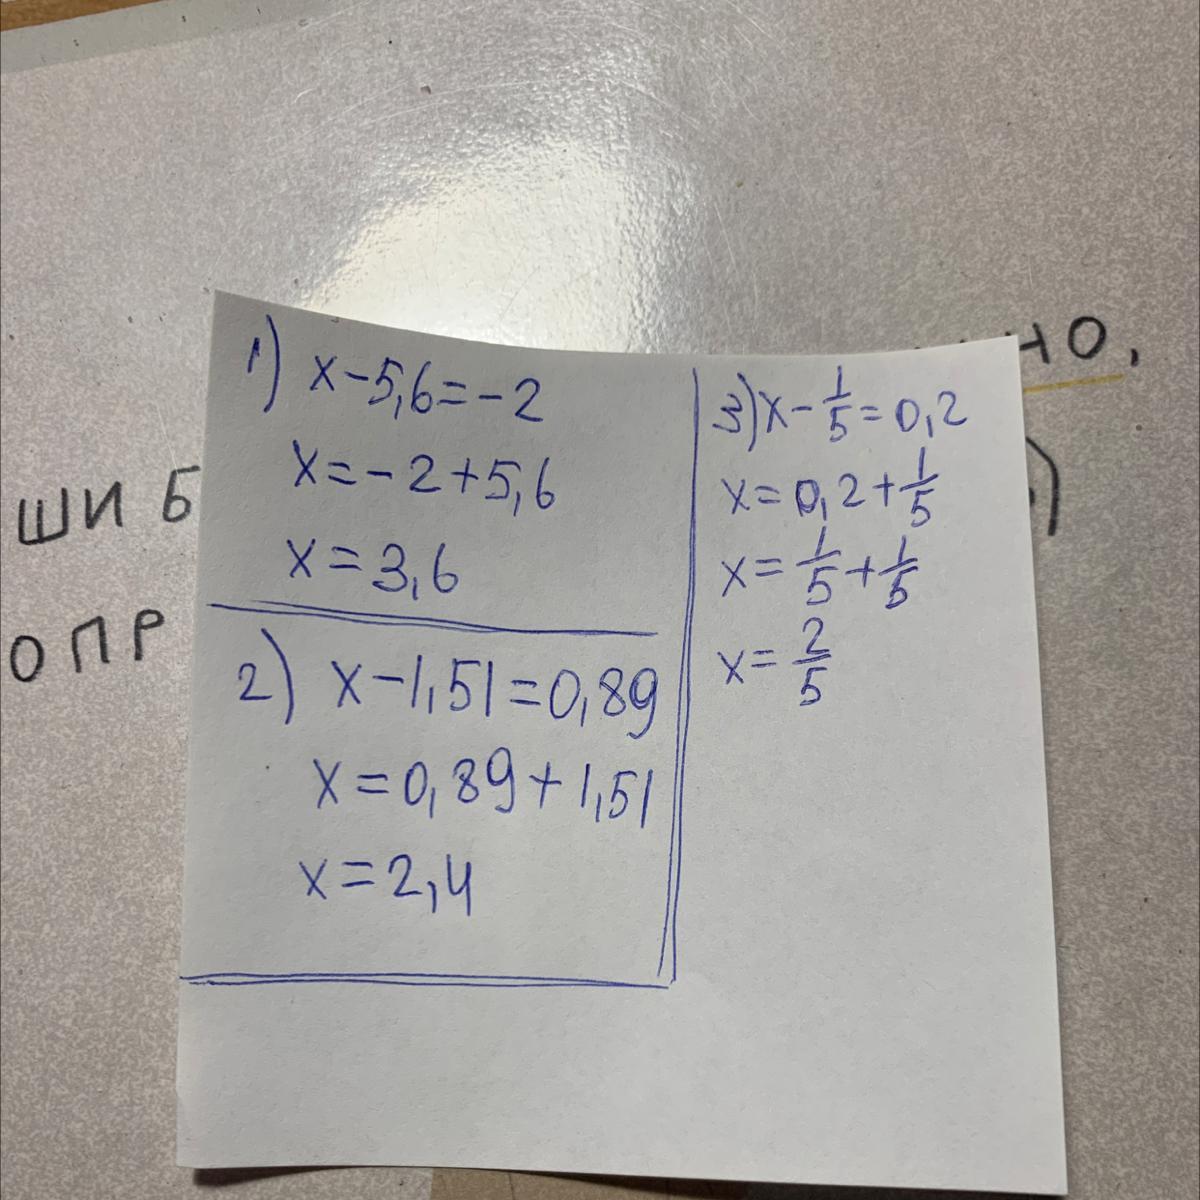 1) x-5,6=-2
x=-2+5,6
x=3,6
2) x-1,51=0,89
x=0,89+1,51
x=2,4
3) x-1/5=0,2
x=0,2+1/5
x=1/5+1/5
x=2/5